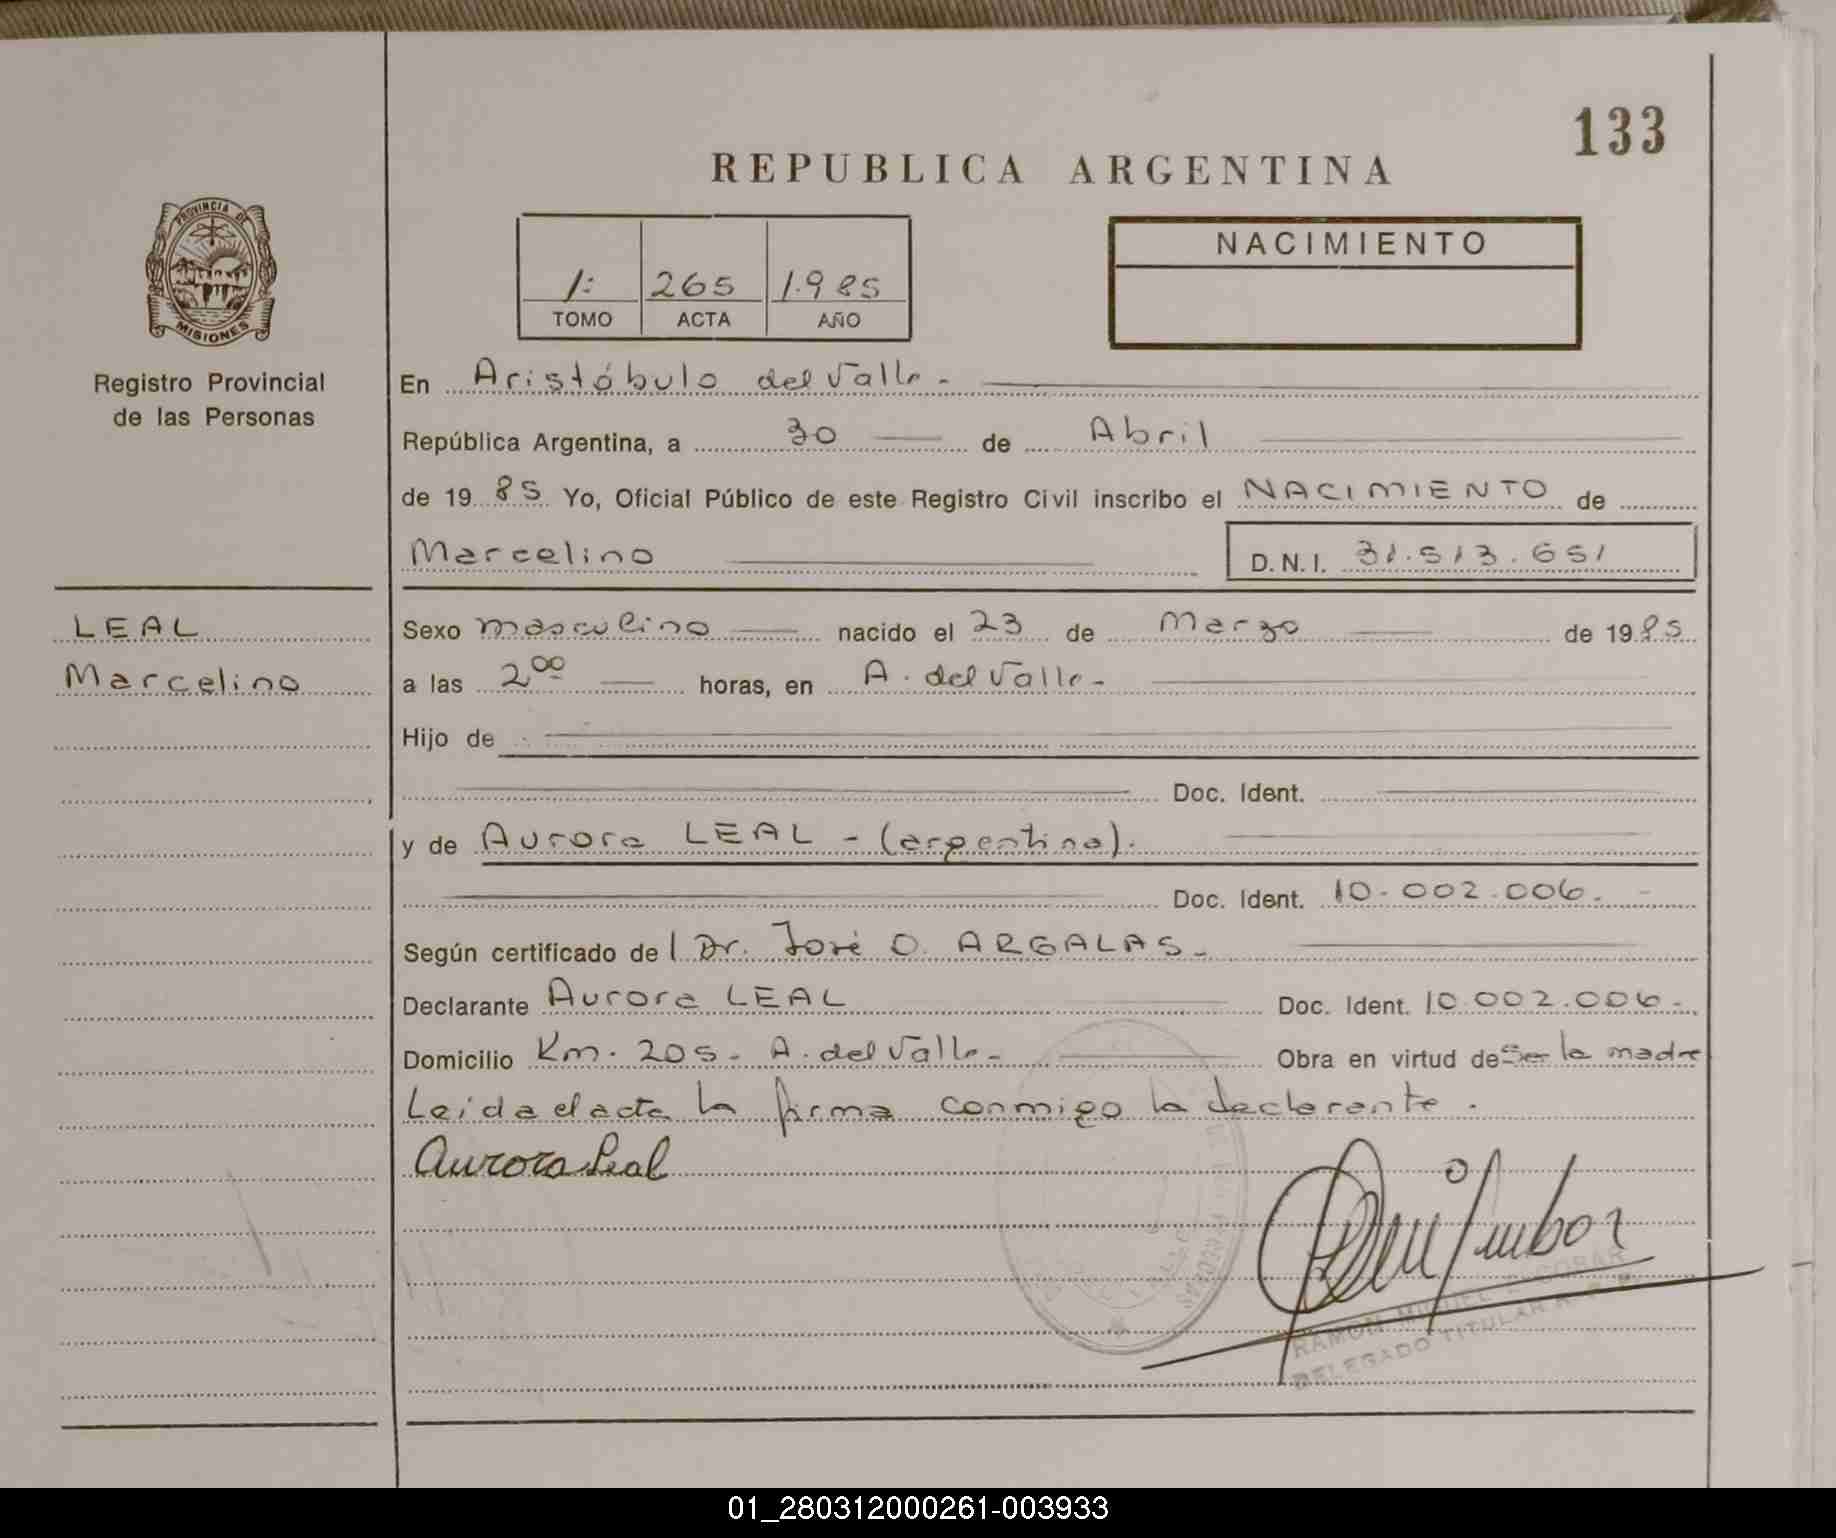 133
REPUBLICA ARGENTINA
PROVINCIA DE
MISIONES
Registro Provincial
de las Personas
1: 265 1.985
TOMO ACTA AÑO
NACIMIENTO
En Aristóbulo del Valle.
República Argentina, a 30 de Abril
de 1985 Yo, Oficial Público de este Registro Civil inscribo el NACIMIENTO de
Marcelino D.N.I. 31.513.651
LEAL
Marcelino
Sexo masculino nacido el 23 de Marzo de 1985
a las 2⁰⁰ horas, en A. del Valle-
Hijo de
Doc. Ident.
y de Aurora LEAL - (argentina).
Doc. Ident. 10.002.006.
Según certificado del Dr. José O. ARGALAS-
Declarante Aurora LEAL Doc. Ident. 10.002.006-
Domicilio Km. 205- A. del Valle- Obra en virtud de Ser la madre
Leída el acta la firma conmigo la declarante.
Aurora Leal
RAMON MIGUEL ESCOBAR
DELEGADO TITULAR
01_280312000261-003933